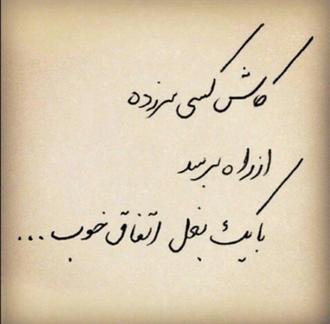 کاش کسی سرزده
از راه برسد
با یک بغل اتفاق خوب ...